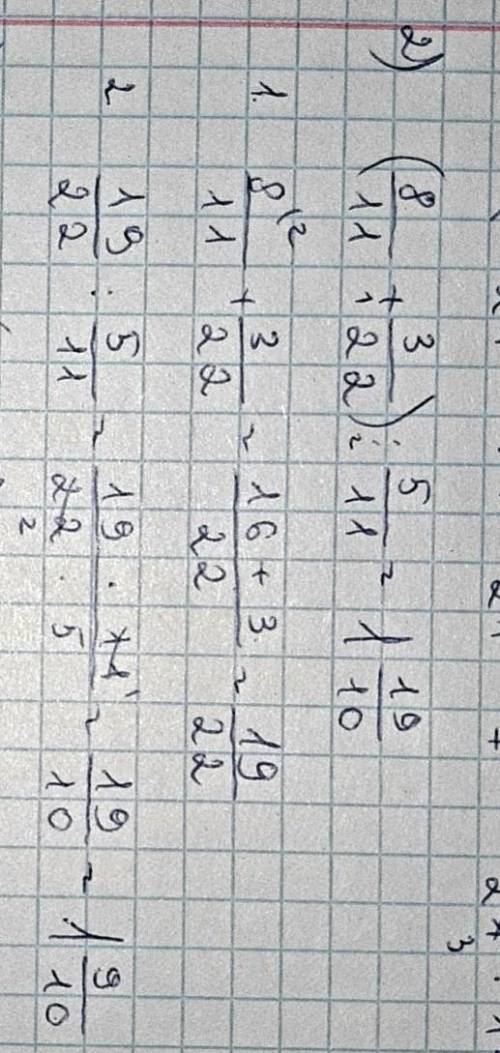 2) (8/11 + 3/22) : 5/11 = 1 19/10
1. 8/11 \2 + 3/22 = 16 + 3/22 = 19/22
2 19/22 : 5/11 = 19 · 11/22 · 5 = 19/10 = 1 9/10